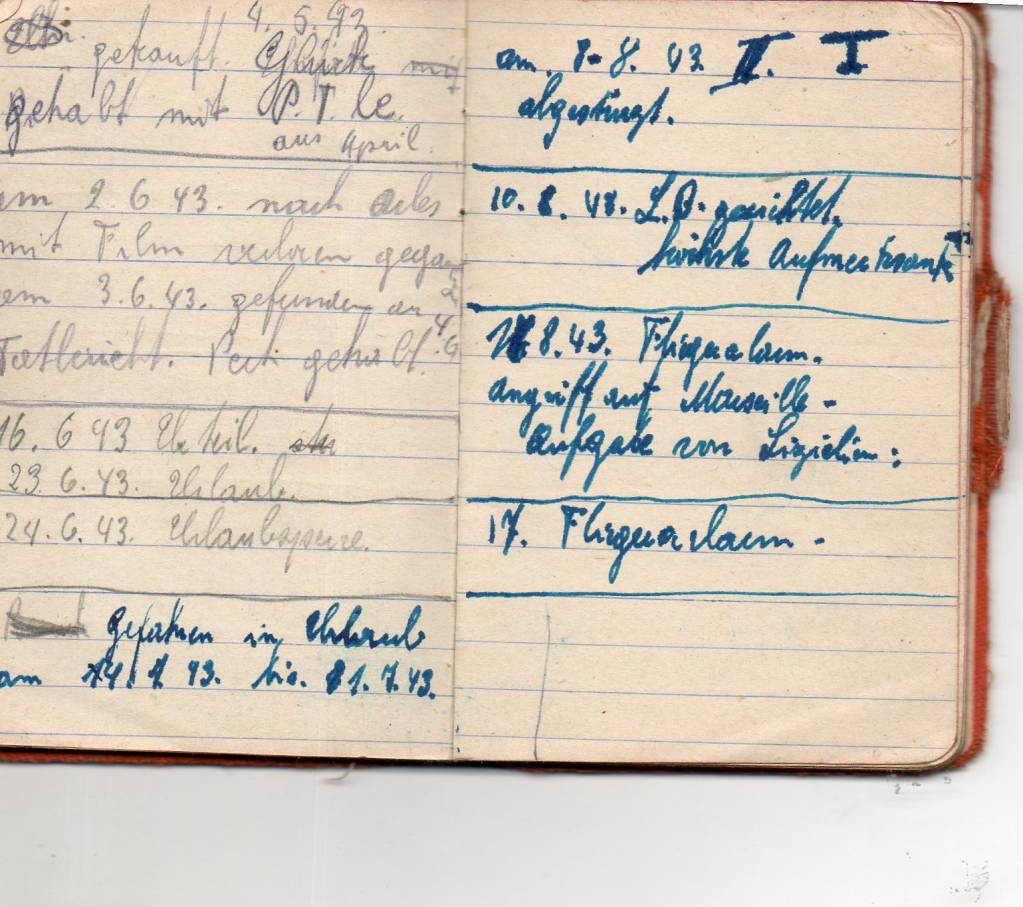 4. 5. 43.
gekauft. Glück
gehabt mit P. T. le.
aus April.
am 2. 6 43. nach Arles
mit Film verloren gegan
am 3. 6. 43. gefunden an
Tatbericht. Pech gehabt.
16. 6 43 Urteil.
23. 6. 43. Urlaub.
24. 6. 43. Urlaubssperre.
gefahren in Urlaub
am 14. 7 43. bis. 31. 7. 43.
am 8. 8. 43 II. I
abgestürzt.
10. 8. 43. L.B. gesichtet.
höchste Aufmerksamk
8. 43. Fliegeralarm.
angriff auf Marseille -
Aufgabe von Sizielien:
17. Fliegeralarm -